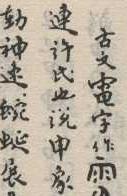 古文電字作雨
連許氏也說申象
動神速蜿蜒展